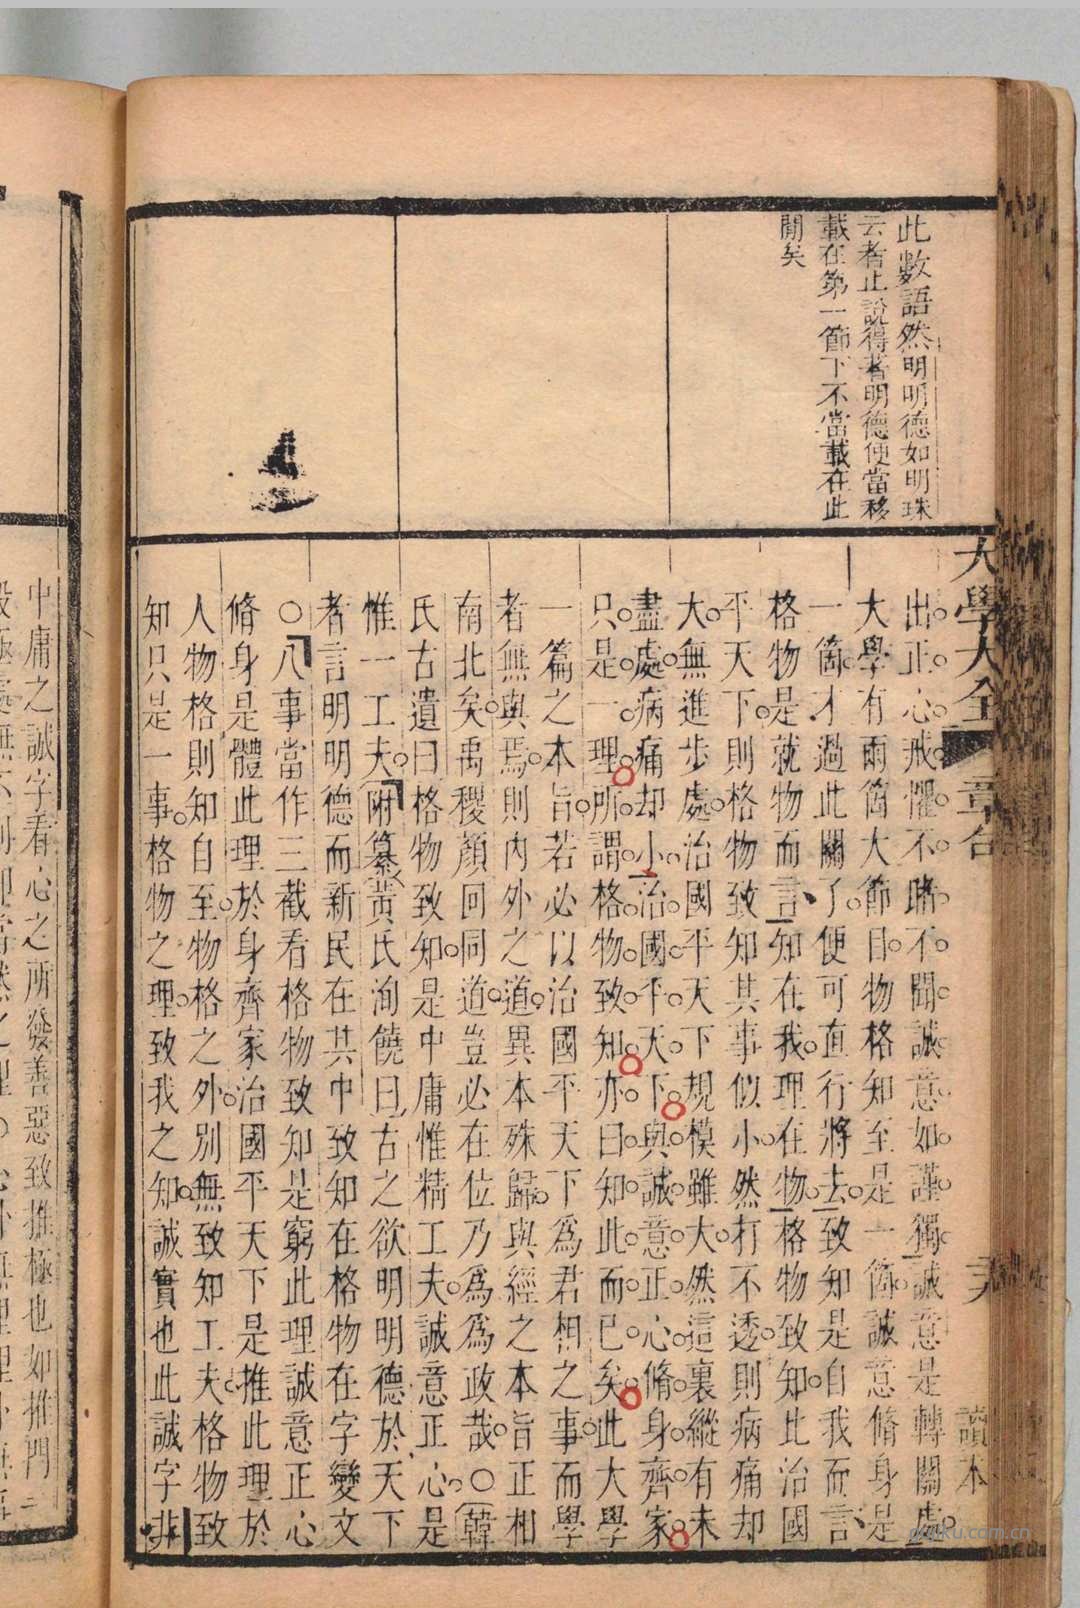 此數語然明明德如明珠
云者止說得著明德便當移
載在第一節下不當載在此
閒矣
大學大全
章句
讀本
出正心戒懼不睹不聞誠意如謹獨誠意是轉關處
大學有兩箇大節目物格知至是一箇誠意脩身是
一箇才過此關了便可直行將去致知是自我而言
格物是就物而言知在我理在物格物致知比治國
平天下則格物致知其事似小然打不透則病痛却
大無進步處治國平天下規模雖大然這裏縱有未
盡處病痛却小治國平天下與誠意正心脩身齊家
只是一理所謂格物致知亦曰知此而已矣此大學
一篇之本旨若必以治國平天下為君相之事而學
者無與焉則內外之道異本殊歸與經之本旨正相
南北矣禹稷顏回同道豈必在位乃為為政哉○韓
氏古遺曰格物致知是中庸惟精工夫誠意正心是
惟一工夫附纂黃氏洵饒曰古之欲明明德於天下
者言明明德而新民在其中致知在格物在字變文
○八事當作三截看格物致知是窮此理誠意正心
脩身是體此理於身齊家治國平天下是推此理於
人物格則知自至物格之外別無致知工夫格物致
知只是一事格物之理致我之知誠實也此誠字非
中庸之誠字看心之所發善惡致推極也如推門